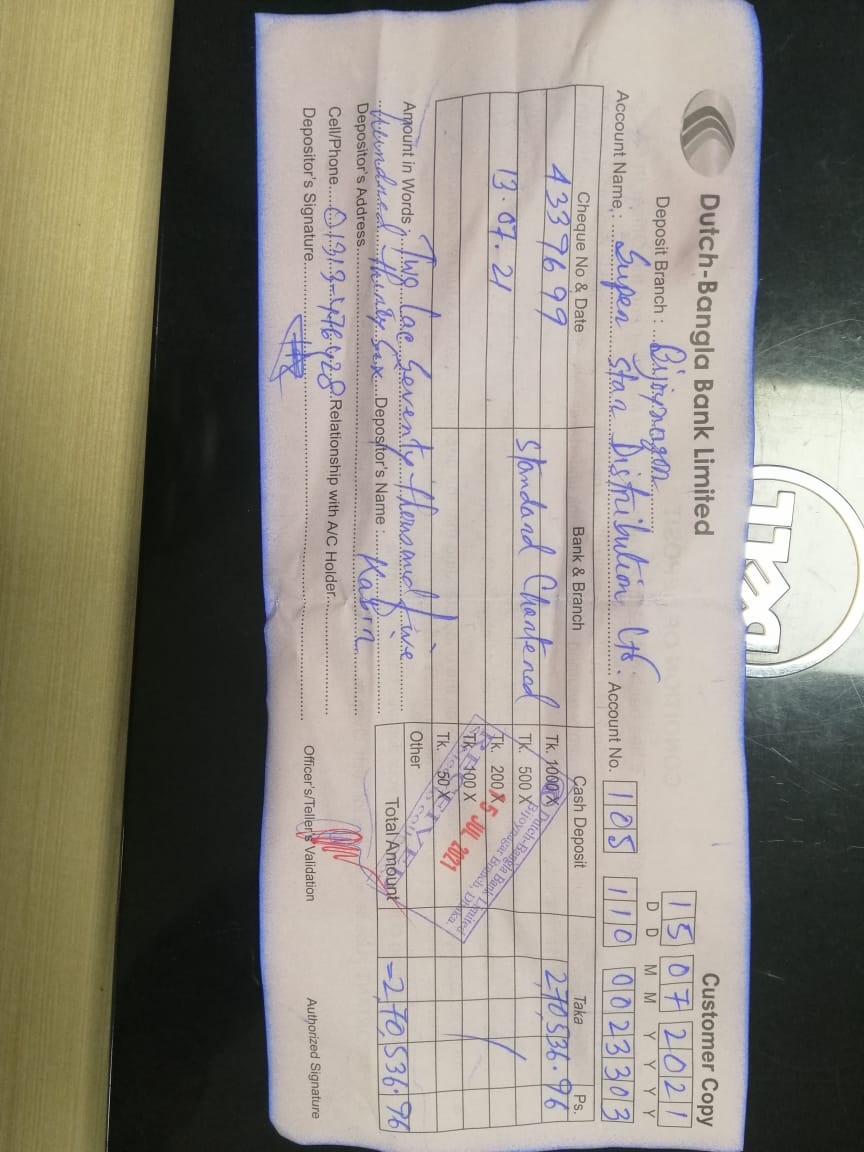 Dutch-Bangla Bank Limited
Customer Copy
Deposit Branch : Bijoynagar
15 07 2021
D D M M Y Y Y Y
Account Name : Super Star Distribution Ltd. Account No. 105 110 0023303
Cheque No & Date Bank & Branch Cash Deposit Taka Ps.
4339699 Tk. 1000 X 270,536.96
Standard Chartered Tk. 500 X
13.07.21 Tk. 200 X
Tk. 100 X
Tk. 50 X
Other
Dutch-Bangla Bank Limited
Bijoynagar Branch, Dhaka
15 JUL 2021
RECEIVED
Amount in Words : Two lac Seventy thousand five
hundred thirty Six Depositor's Name : Kabir
Total Amount =2,70,536.96
Depositor's Address
Cell/Phone 01313-476428 Relationship with A/C Holder
Depositor's Signature
Officer's/Teller's Validation
Authorized Signature
DELL